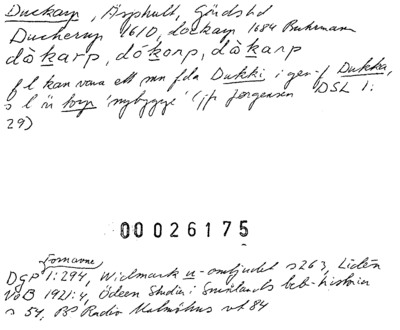 Duckarp, Äsphult, Gärds hd
Ducherup 1610, Dockarp 1684 Buhrmann
dòkarp, dókorp, dòkarp
f l kan vara ett mn fda Dukki i gen-f Dukka,
s l är torp 'nybygge' (jfr Jørgensen DSL 1:
29)
00026175
Fornavne
DGP 1:294, Widmark u-omljudet s 263, Lidén
VoB 1921:4, Ödeen Studier i Smålands beb-historia
s 54, BP Radio Malmöhus vt 84